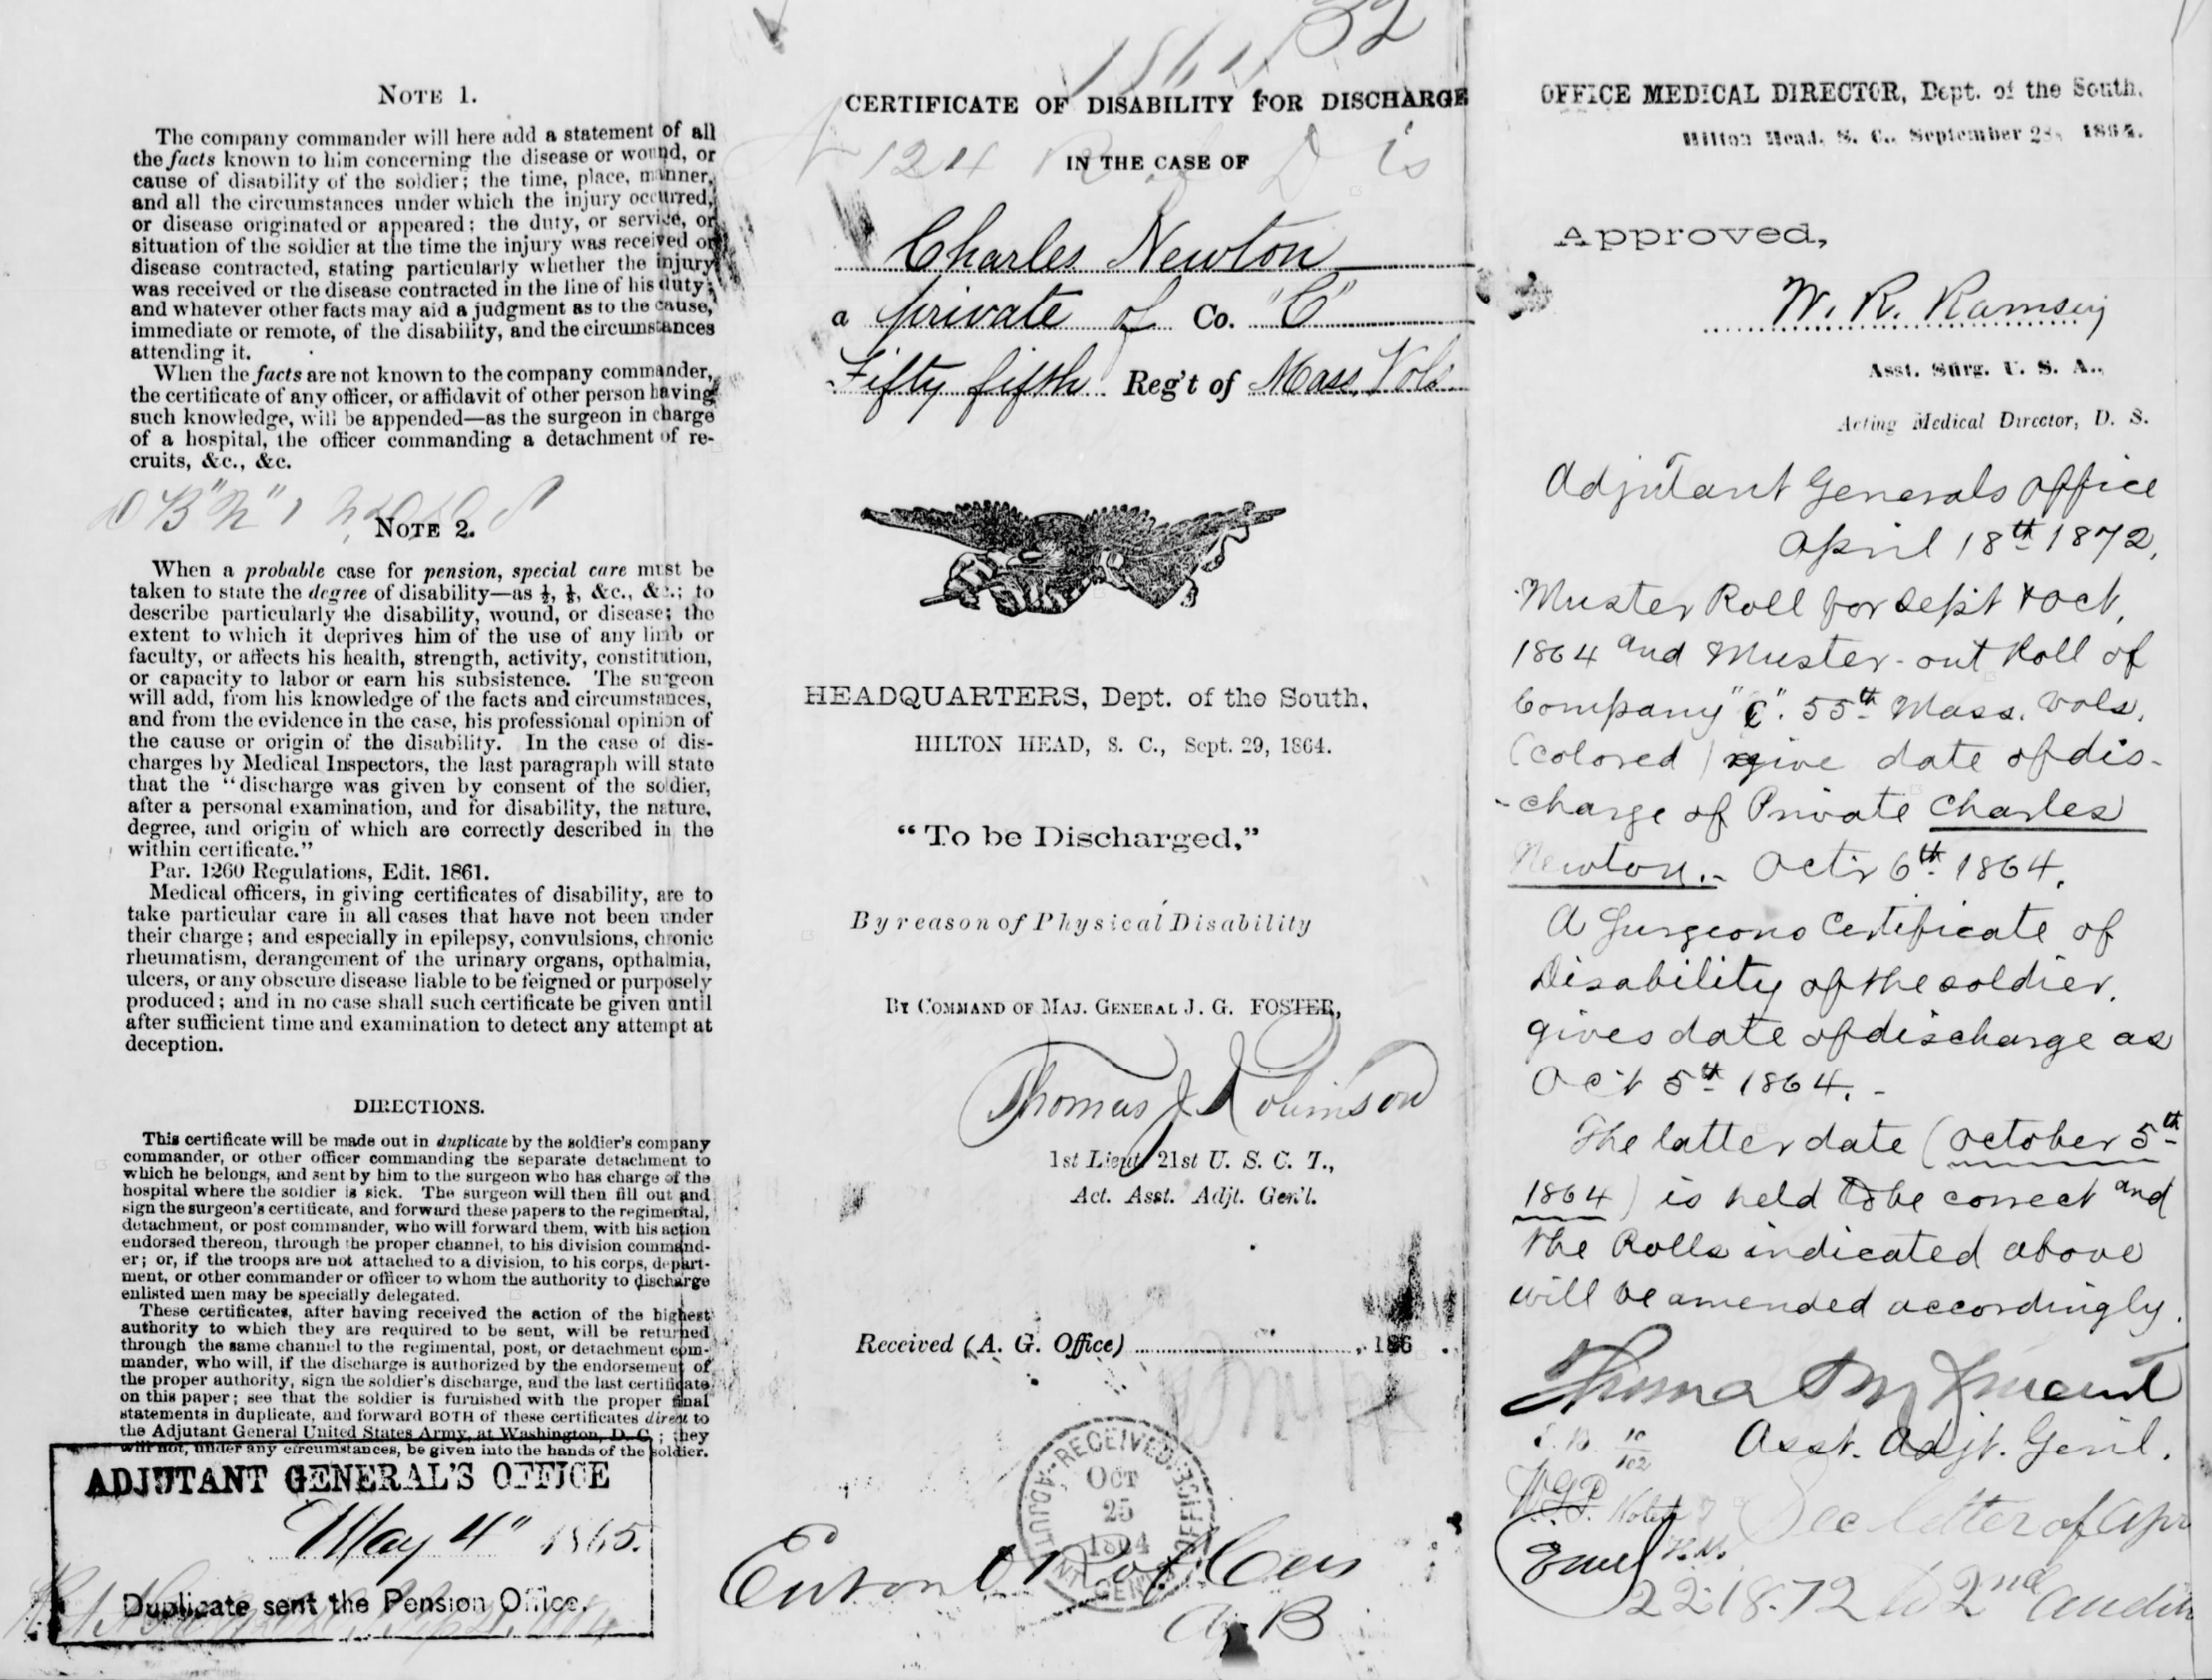 NOTE 1.
The company commander will here add a statement of all
the facts known to him concerning the disease or wound, or
cause of disability of the soldier; the time, place, manner,
and all the circumstances under which the injury occurred,
or disease originated or appeared; the duty, or service, or
situation of the soldier at the time the injury was received or
disease contracted, stating particularly whether the injury
was received or the disease contracted in the line of his duty;
and whatever other facts may aid a judgment as to the cause,
immediate or remote, of the disability, and the circumstances
attending it.
When the facts are not known to the company commander,
the certificate of any officer, or affidavit of other person having
such knowledge, will be appended—as the surgeon in charge
of a hospital, the officer commanding a detachment of re-
cruits, &c., &c.
NOTE 2.
When a probable case for pension, special care must be
taken to state the degree of disability—as ½, ⅓, &c., &c.; to
describe particularly the disability, wound, or disease; the
extent to which it deprives him of the use of any limb or
faculty, or affects his health, strength, activity, constitution,
or capacity to labor or earn his subsistence. The surgeon
will add, from his knowledge of the facts and circumstances,
and from the evidence in the case, his professional opinion of
the cause or origin of the disability. In the case of dis-
charges by Medical Inspectors, the last paragraph will state
that the "discharge was given by consent of the soldier,
after a personal examination, and for disability, the nature,
degree, and origin of which are correctly described in the
within certificate."
Par. 1260 Regulations, Edit. 1861.
Medical officers, in giving certificates of disability, are to
take particular care in all cases that have not been under
their charge; and especially in epilepsy, convulsions, chronic
rheumatism, derangement of the urinary organs, opthalmia,
ulcers, or any obscure disease liable to be feigned or purposely
produced; and in no case shall such certificate be given until
after sufficient time and examination to detect any attempt at
deception.
DIRECTIONS.
This certificate will be made out in duplicate by the soldier's company
commander, or other officer commanding the separate detachment to
which he belongs, and sent by him to the surgeon who has charge of the
hospital where the soldier is sick. The surgeon will then fill out and
sign the surgeon's certificate, and forward these papers to the regimental,
detachment, or post commander, who will forward them, with his action
endorsed thereon, through the proper channel, to his division command-
er; or, if the troops are not attached to a division, to his corps, depart-
ment, or other commander or officer to whom the authority to discharge
enlisted men may be specially delegated.
These certificates, after having received the action of the highest
authority to which they are required to be sent, will be returned
through the same channel to the regimental, post, or detachment com-
mander, who will, if the discharge is authorized by the endorsement of
the proper authority, sign the soldier's discharge, and the last certificate
on this paper; see that the soldier is furnished with the proper final
statements in duplicate, and forward BOTH of these certificates direct to
the Adjutant General United States Army, at Washington, D. C.; they
will not, under any circumstances, be given into the hands of the soldier.
ADJUTANT GENERAL'S OFFICE
May 4" 1865.
Duplicate sent the Pension Office.
32
CERTIFICATE OF DISABILITY FOR DISCHARGE
124
IN THE CASE OF
Charles Newton
a private of Co. "C"
Fifty fifth Reg't of Mass. Vols.
HEADQUARTERS, Dept. of the South,
HILTON HEAD, S. C., Sept. 29, 1864.
"To be Discharged,"
By reason of Physical Disability
BY COMMAND OF MAJ. GENERAL J. G. FOSTER,
Thomas J Robinson
1st Lieut 21st U. S. C. T.,
Act. Asst. Adjt. Gen'l.
Received (A. G. Office) , 186 .
ADJUTANT GENERAL'S OFFICE RECEIVED
OCT
25
1864
A B
OFFICE MEDICAL DIRECTOR, Dept. of the South,
Hilton Head, S. C., September 28, 1864.
Approved,
W. R. Ramsey
Asst. Surg. U. S. A.,
Acting Medical Director, D. S.
Adjutant Generals Office
April 18th 1872,
Muster Roll for Sept & Oct,
1864 and Muster-out Roll of
Company "C". 55th Mass. Vols,
(colored) give date of dis-
-charge of Private Charles
Newton.- Octr 6th 1864.
A Surgeons Certificate of
Disability of the soldier,
gives date of discharge as
Oct 5th 1864.-
The latter date (October 5th
1864) is held to be correct and
the Rolls indicated above
will be amended accordingly.
Thomas M Vincent
Asst. Adjt. Genl.
See letter of Apr
22 18-72 to 2nd